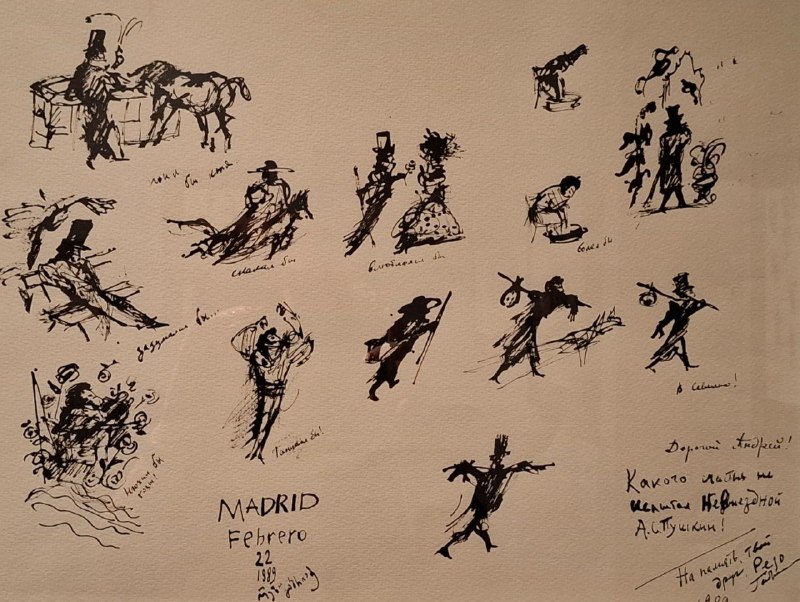 поил бы коня
скакал бы
влюблялся бы
болел бы
задумался бы...
Танцевал бы!
В Севилью!
MADRID
Febrero
22
1989
Дорогой Андрей!
Какого счастья не
испытал Невыездной
А.С. Пушкин!
На память, твой
друг Резо
1989